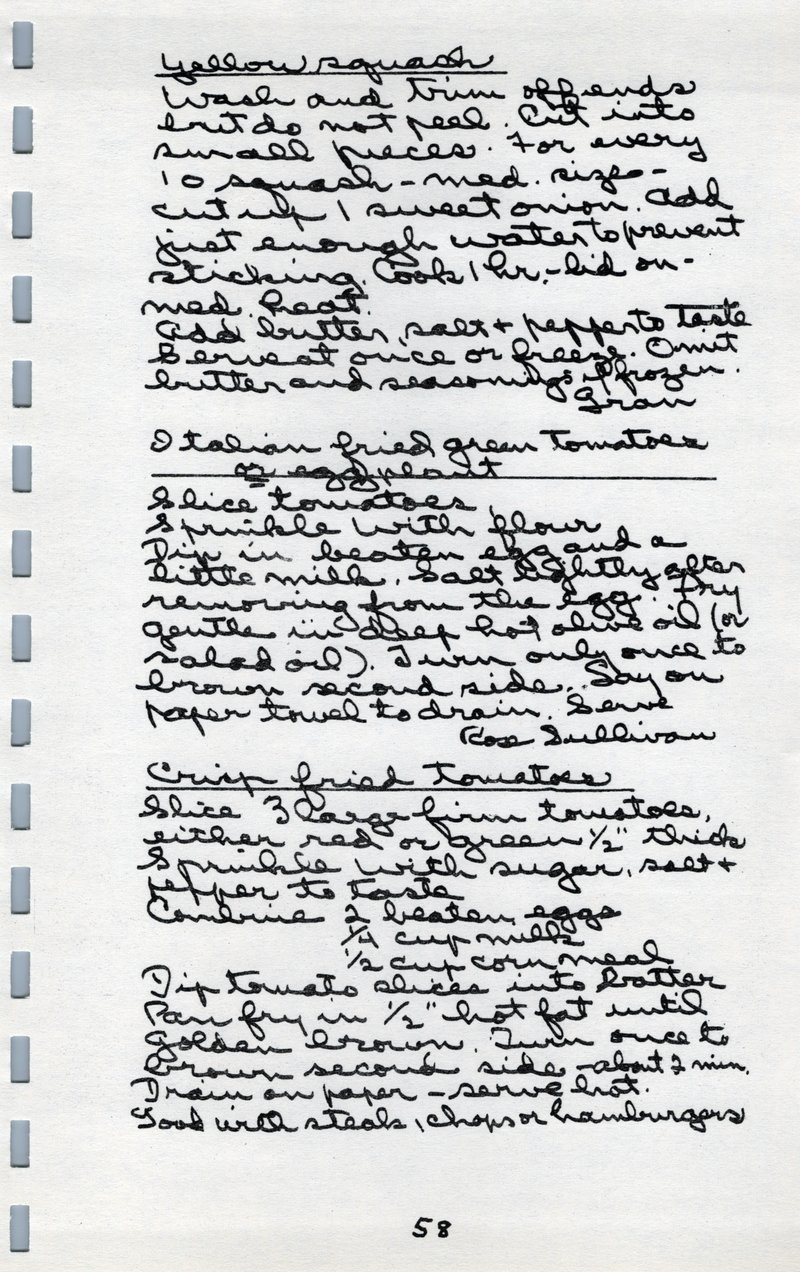 Yellow squash
Wash and trim off ends
but do not peel. Cut into
small pieces. For every
10 squash - med. size -
cut up 1 sweet onion. Add
just enough water to prevent
sticking. Cook 1 hr. - lid on -
med. heat.
Add butter, salt + pepper to taste
Serve at once or freeze. Omit
butter and seasonings if frozen.
Gran
Italian fried green tomatoes
or eggplant
Slice tomatoes
Sprinkle with flour
Dip in beaten egg and a
little milk. Salt lightly after
removing from the egg. Fry
gentle in deep hot olive oil (or
salad oil). Turn only once to
brown second side. Lay on
paper towel to drain. Serve
Rose Sullivan
Crisp fried tomatoes
Slice 3 large firm tomatoes,
either red or green 1/2" thick
Sprinkle with sugar, salt +
pepper to taste
Combine 2 beaten eggs
1/4 cup milk
1/2 cup corn meal
Dip tomato slices into batter
Pan fry in 1/2" hot fat until
golden brown. Turn once to
brown second side - about 2 min.
Drain on paper - serve hot.
Good with steak, chops or hamburgers
58